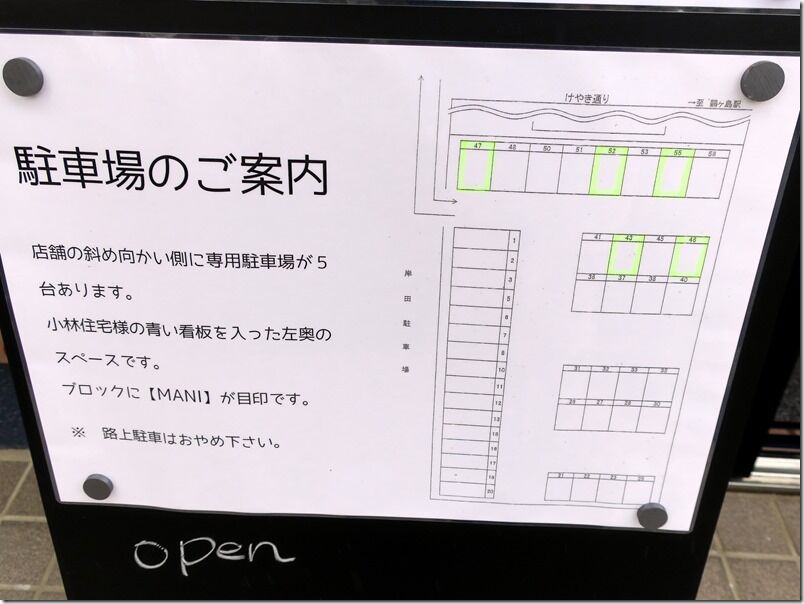 けやき通り
→至 鶴ヶ島駅
47 48 50 51 52 53 55 56
駐車場のご案内
店舗の斜め向かい側に専用駐車場が5
台あります。
小林住宅様の青い看板を入った左奥の
スペースです。
ブロックに【MANI】が目印です。
※ 路上駐車はおやめ下さい。
岸田駐車場
1
2
3
5
6
7
8
10
11
12
13
15
16
17
18
20
41 43 45 46
36 37 38 40
31 32 33 35
26 27 28 30
21 22 23 25
open